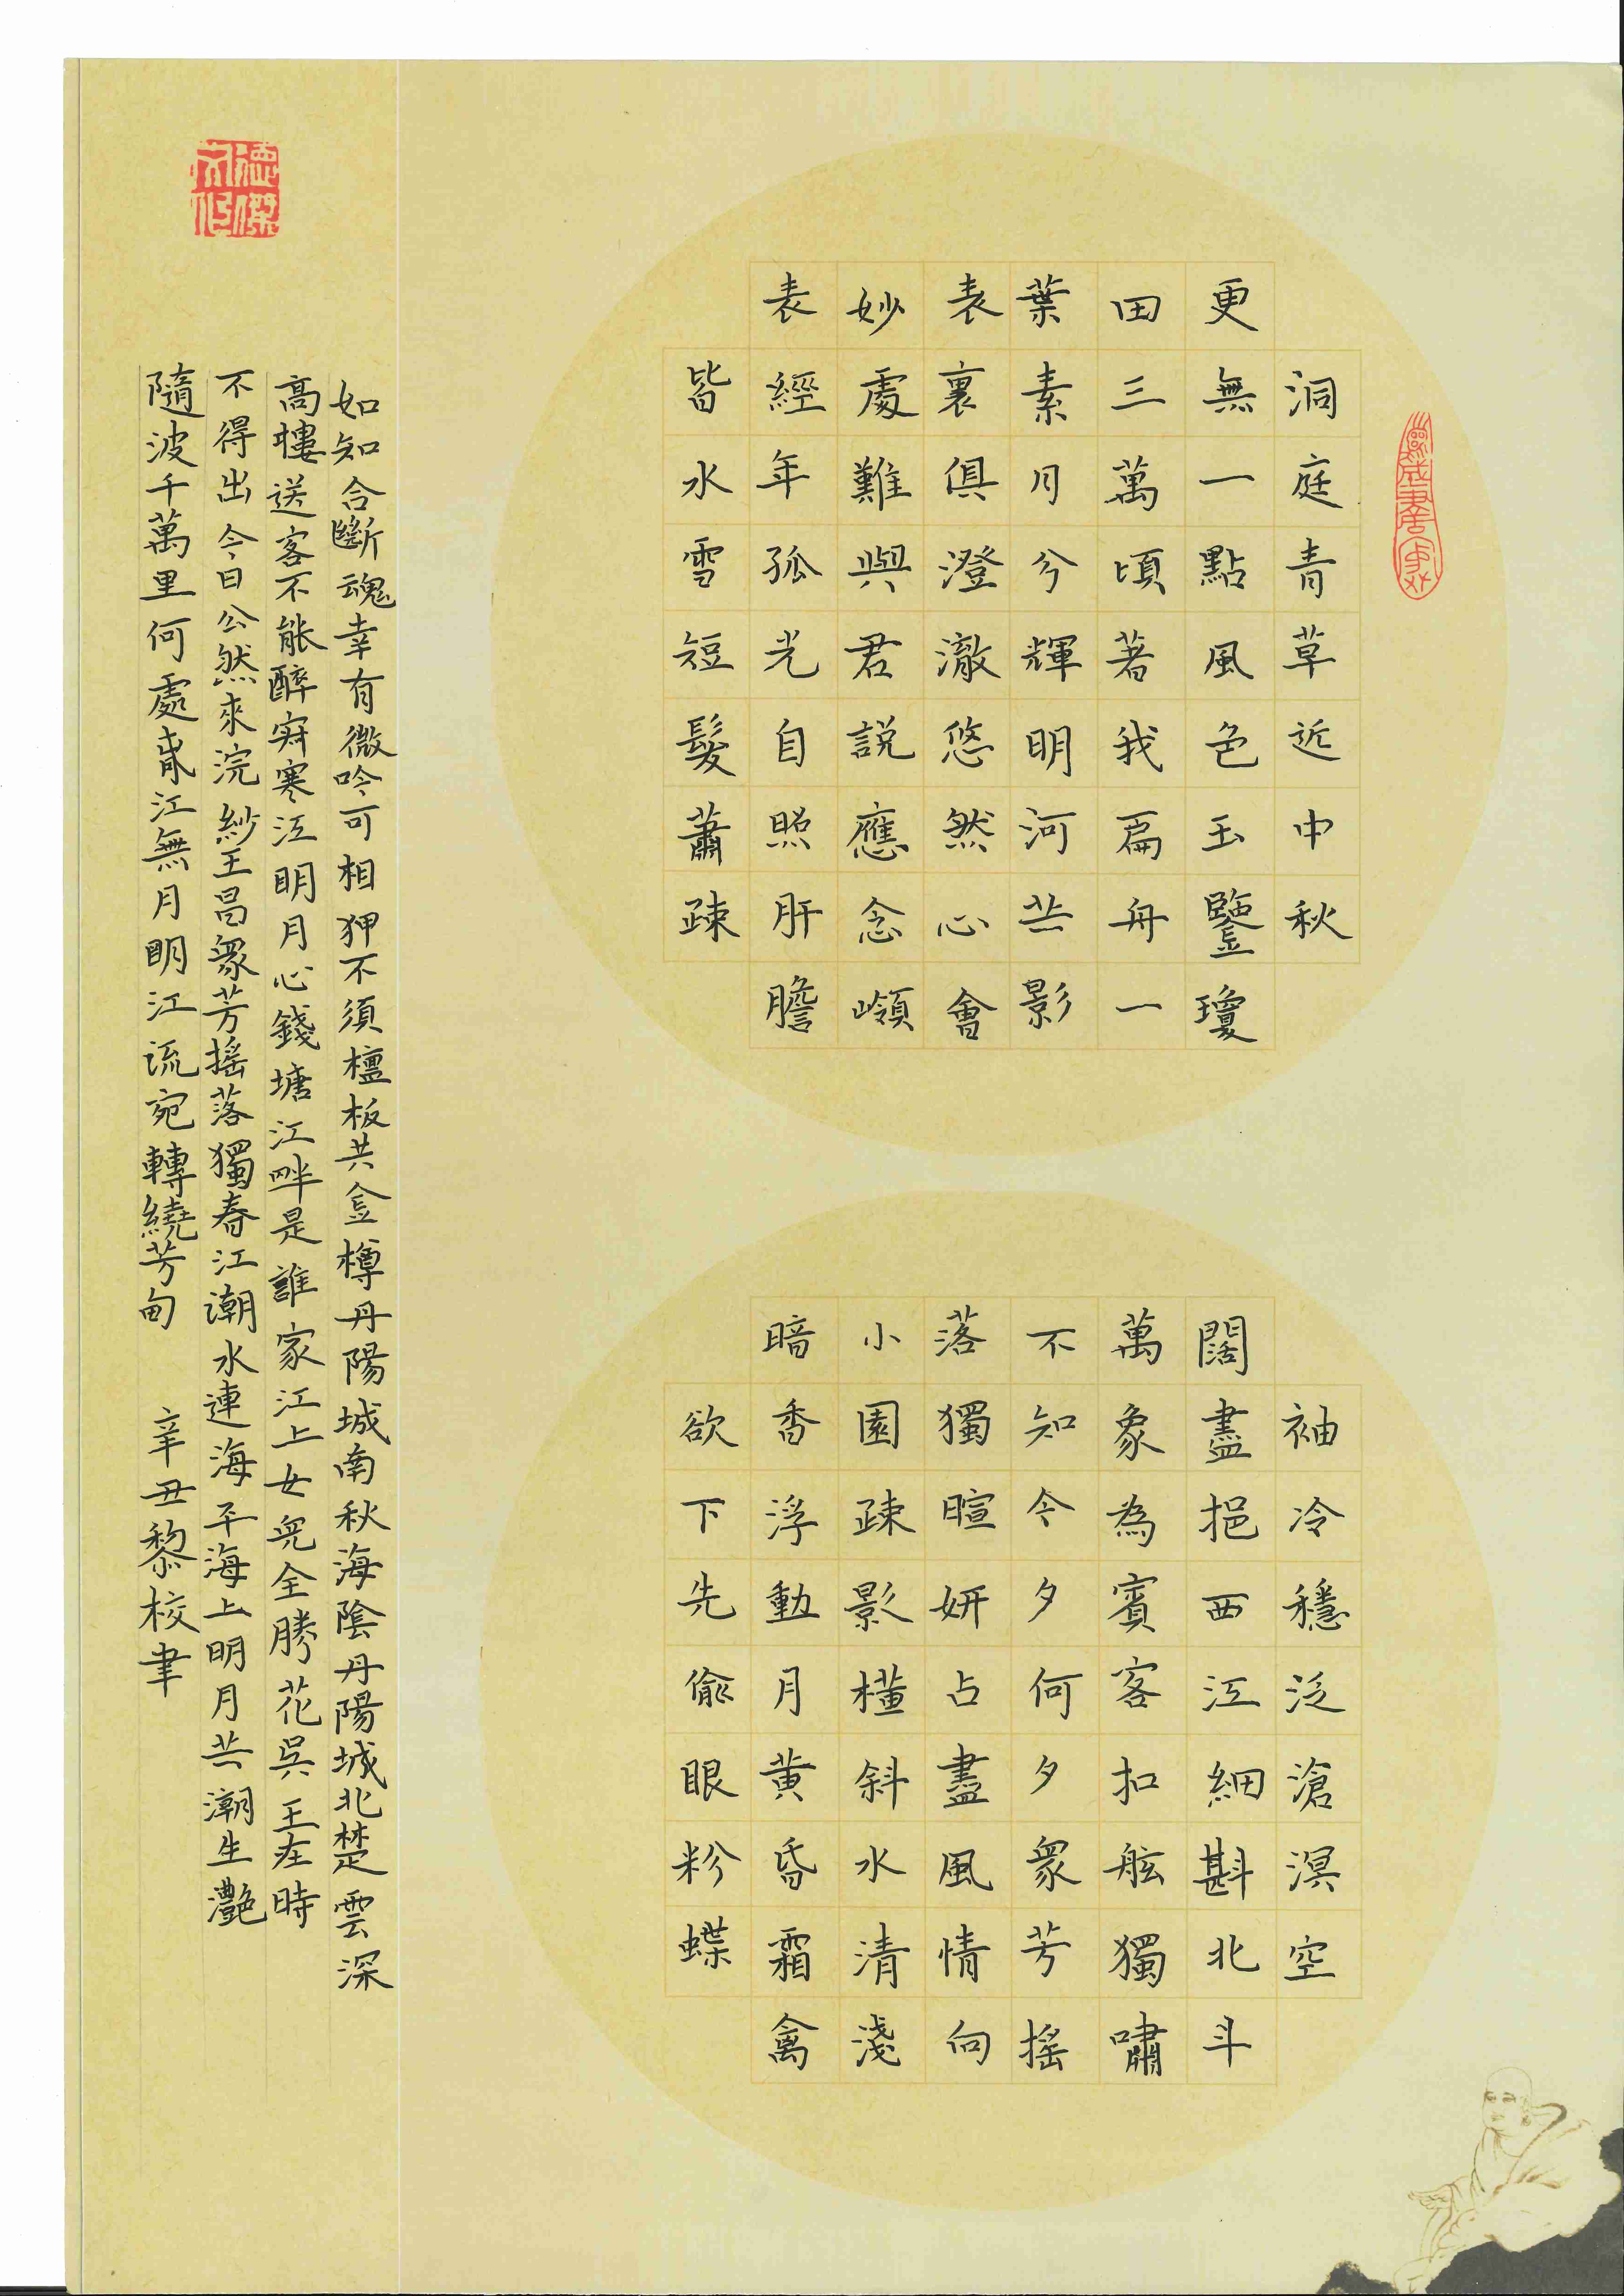 洞庭青草近中秋
更無一點風色玉鑒瓊
田三萬頃著我扁舟一
葉素月分輝明河共影
表裏俱澄澈悠然心會
妙處難與君説應念嶺
表經年孤光自照肝膽
皆冰雪短髮蕭疎
袖冷穩泛滄溟空
闊盡挹西江細斟北斗
萬象為賓客扣舷獨嘯
不知今夕何夕衆芳搖
落獨暄妍占盡風情向
小園疎影橫斜水清淺
暗香浮動月黃昏霜禽
欲下先偷眼粉蝶
如知合斷魂幸有微吟可相狎不須檀板共金樽丹陽城南秋海陰丹陽城北楚雲深
高樓送客不能醉寂寂寒江明月心錢塘江畔是誰家江上女兒全勝花吳王在時
不得出今日公然來浣紗王昌衆芳搖落獨春江潮水連海平海上明月共潮生灩
隨波千萬里何處春江無月明江流宛轉繞芳甸 辛丑黎校聿